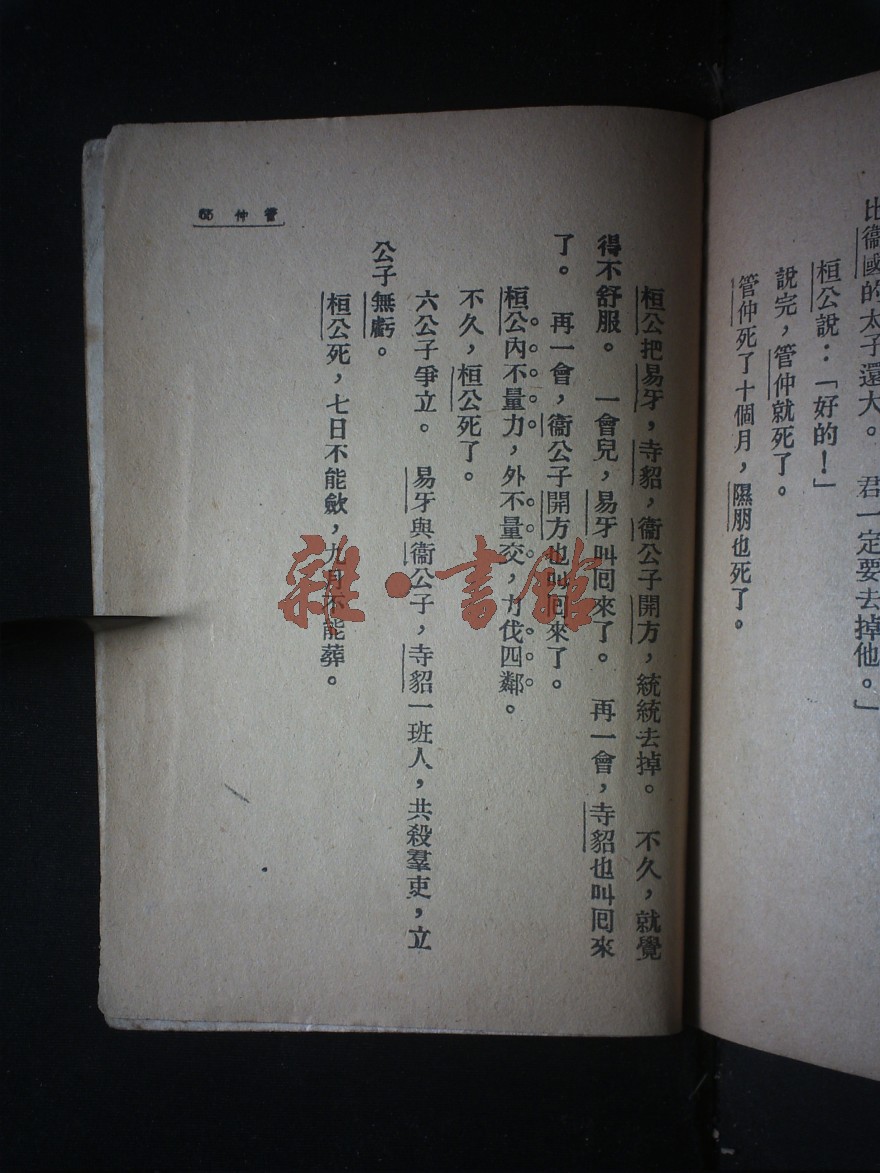 比衞國的太子還大。 君一定要去掉他。」
桓公說：「好的！」
說完，管仲就死了。
管仲死了十個月，隰朋也死了。
管仲 65
桓公把易牙，寺貂，衞公子開方，統統去掉。 不久，就覺
得不舒服。 一會兒，易牙叫囘來了。 再一會，寺貂也叫囘來
了。 再一會，衞公子開方也叫囘來了。
桓公內不量力，外不量交，力伐四鄰。
不久，桓公死了。
六公子爭立。 易牙與衞公子，寺貂一班人，共殺羣吏，立
公子無虧。
桓公死，七日不能歛，九月不能葬。
雜·書館